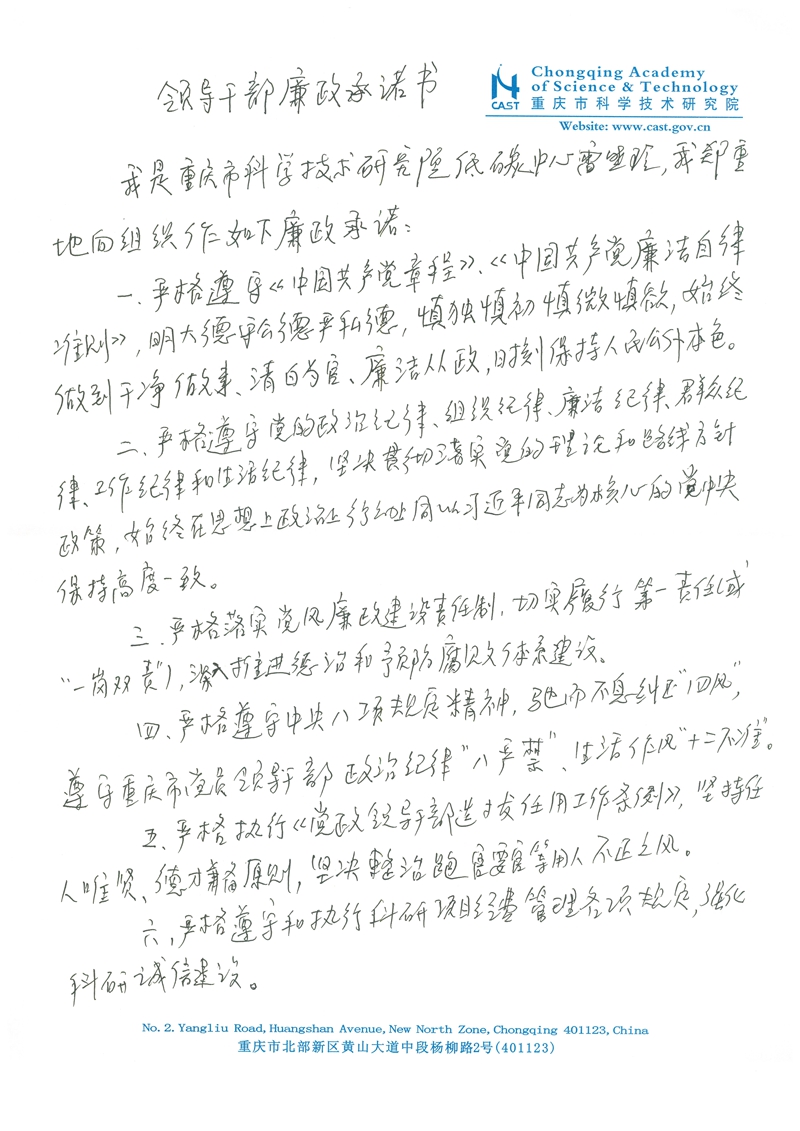 Chongqing Academy
of Science & Technology
CAST 重庆市科学技术研究院
Website: www.cast.gov.cn
领导干部廉政承诺书
我是重庆市科学技术研究院低碳中心雷，我郑重
地向组织作如下廉政承诺：
一、严格遵守《中国共产党章程》、《中国共产党廉洁自律
准则》，明大德守公德严私德，慎独慎初慎微慎欲，始终
做到干净做事、清白为官、廉洁从政，时刻保持人民公仆本色。
二、严格遵守党的政治纪律、组织纪律、廉洁纪律、群众纪
律、工作纪律和生活纪律，坚决贯彻落实党的理论和路线方针
政策，始终在思想上政治上行动上同以习近平同志为核心的党中央
保持高度一致。
三、严格落实党风廉政建设责任制，切实履行第一责任（或
“一岗双责”），深入推进德治和预防腐败体系建设。
四、严格遵守中央八项规定精神，驰而不息纠正“四风”，
遵守重庆市党员领导干部政治纪律“八严禁”、生活作风“十二不准”。
五、严格执行《党政领导干部选拔任用工作条例》，坚持任
人唯贤、德才兼备原则，坚决整治跑官要官等用人不正之风。
六、严格遵守和执行科研项目经费管理各项规定，强化
科研诚信建设。
No. 2. Yangliu Road, Huangshan Avenue, New North Zone, Chongqing 401123, China
重庆市北部新区黄山大道中段杨柳路2号(401123)